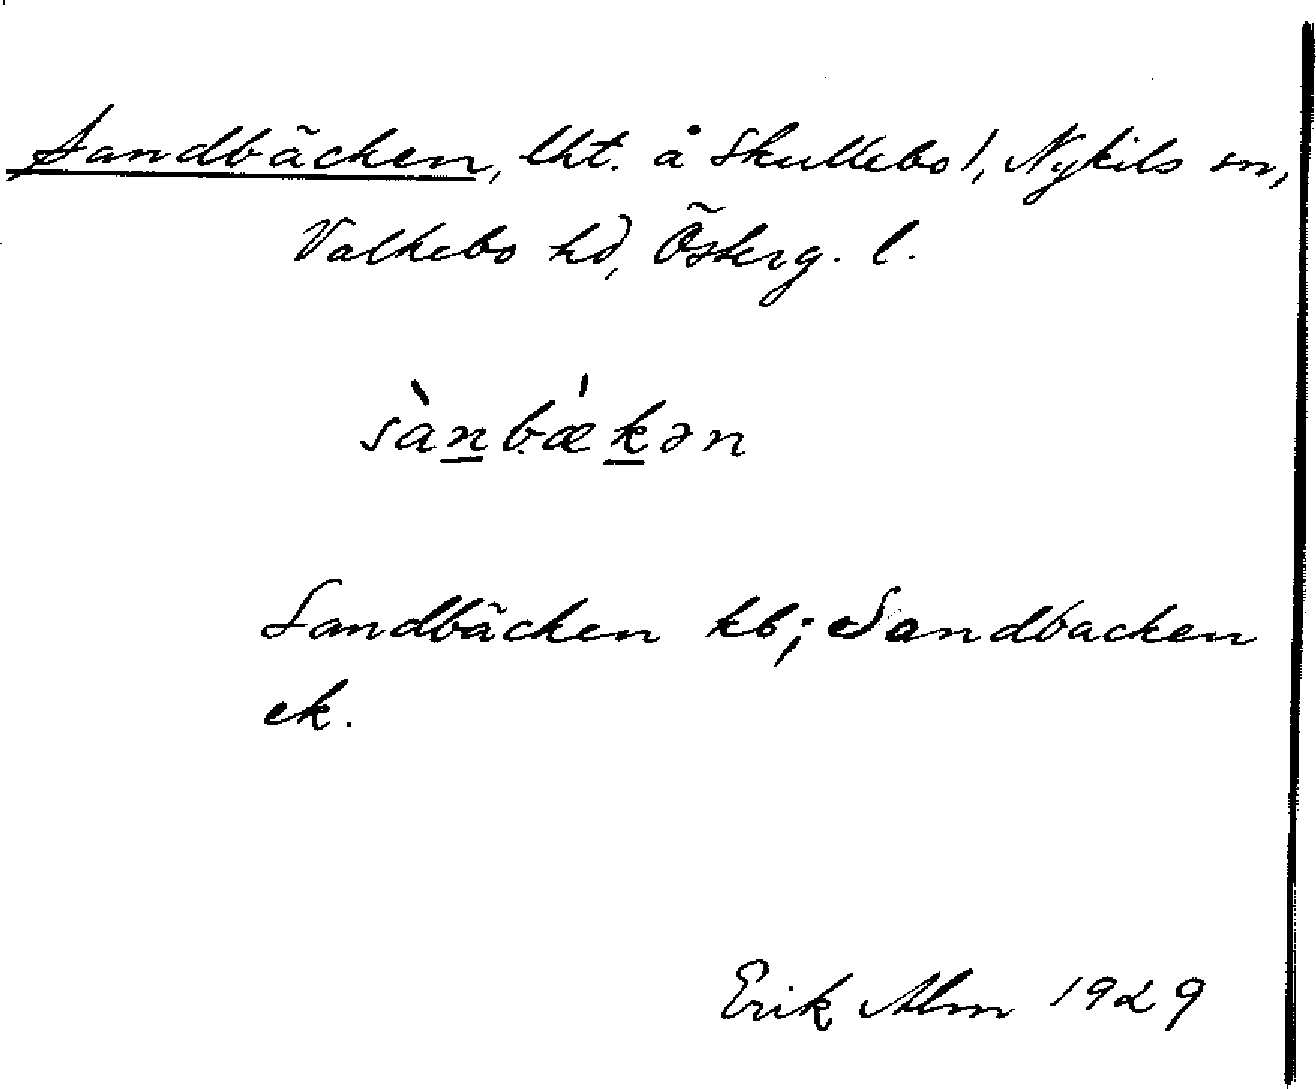 Sandbäcken, lht. å Skullebo 1, Nykils sn,
Valkebo hd, Österg. l.
sànbækən
Sandbäcken kb; Sandbacken
ek.
Erik Alm 1929